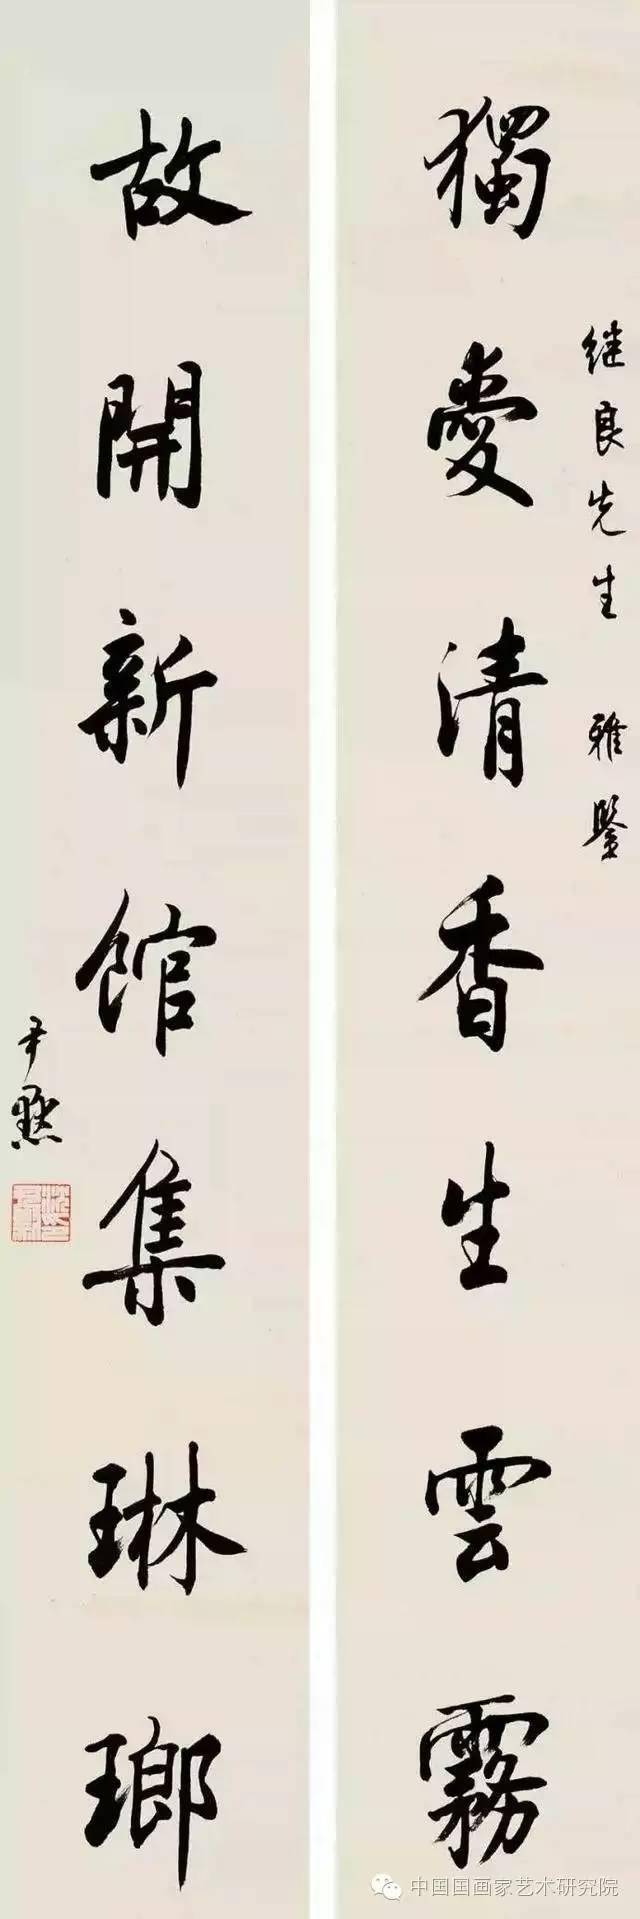 继良先生 雅鑒
獨愛清香生雲霧
故開新館集琳瑯
尹默
中国国画家艺术研究院